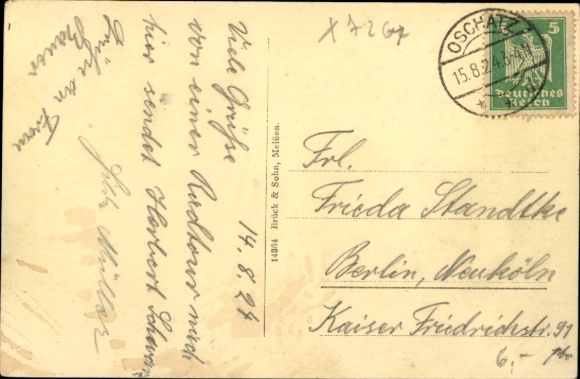 X 7267
OSCHATZ
15.8.24.
5
Deutsches
Reich
14.8.24
Viele Grüße
von einer Radtour nach
hier sendet Herbert
Grüße an Firma
Fritz Müller
14364 Brück & Sohn, Meißen.
Frl.
Frieda Standtke
Berlin, Neuköln
Kaiser Friedrichstr. 91
6,-